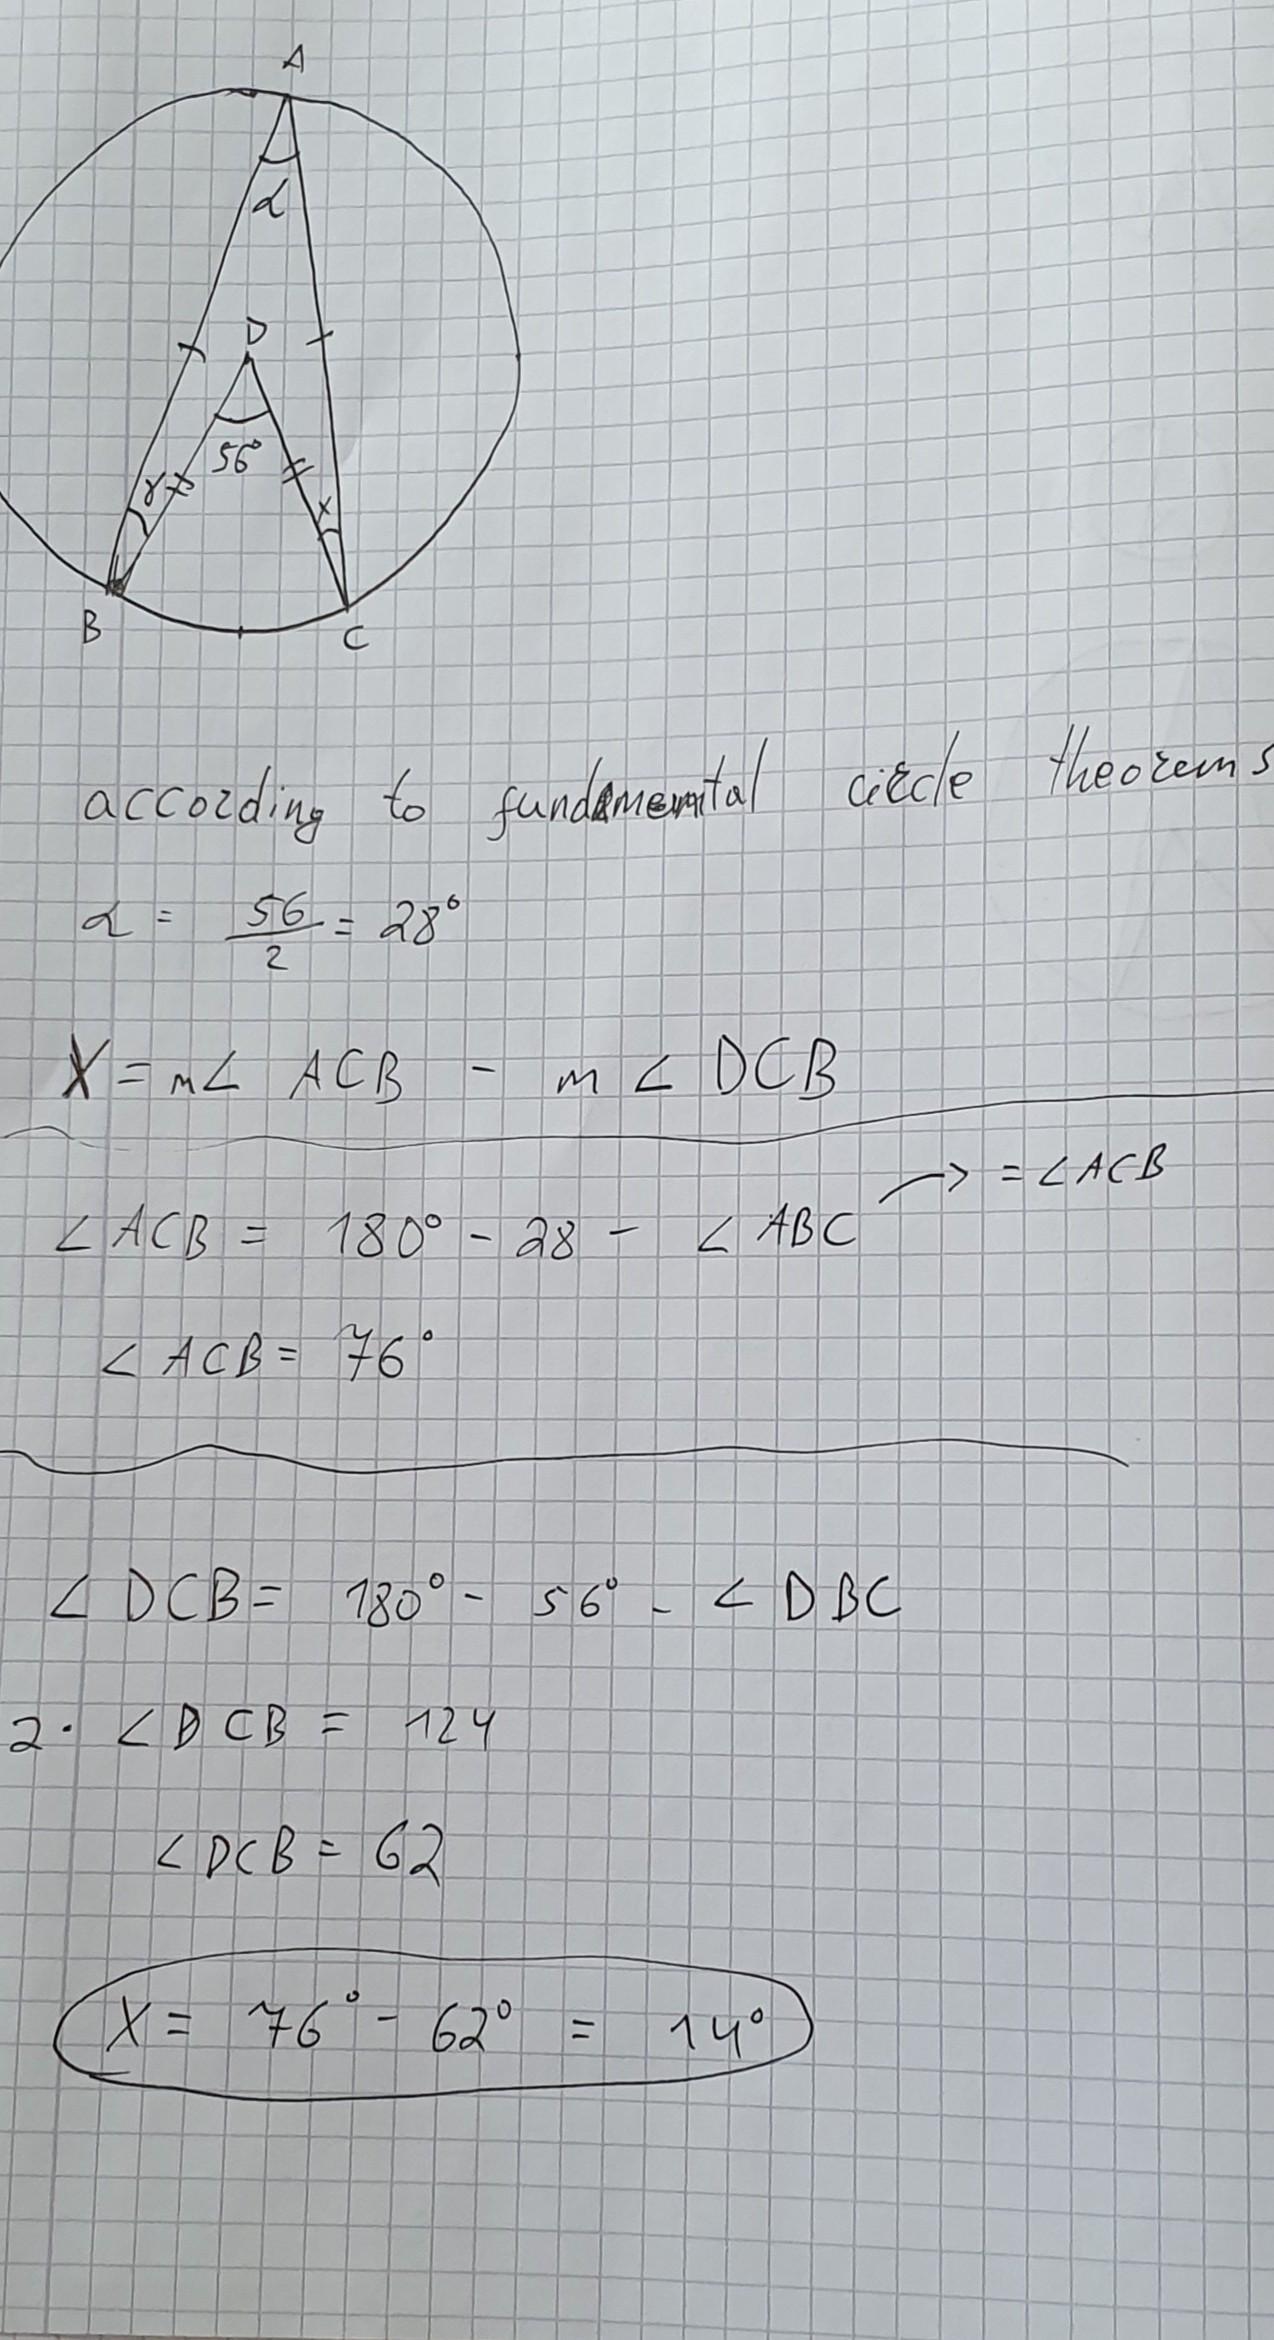 A
α
D
56°
γ
x
B
C
according to fundamental circle theorems
α = 56/2 = 28°
X = m∠ ACB - m ∠ DCB
∠ ACB = 180° - 28 - ∠ ABC → = ∠ ACB
∠ ACB = 76°
∠ DCB = 180° - 56° - ∠ DBC
2 · ∠ DCB = 124
∠ DCB = 62
X = 76° - 62° = 14°